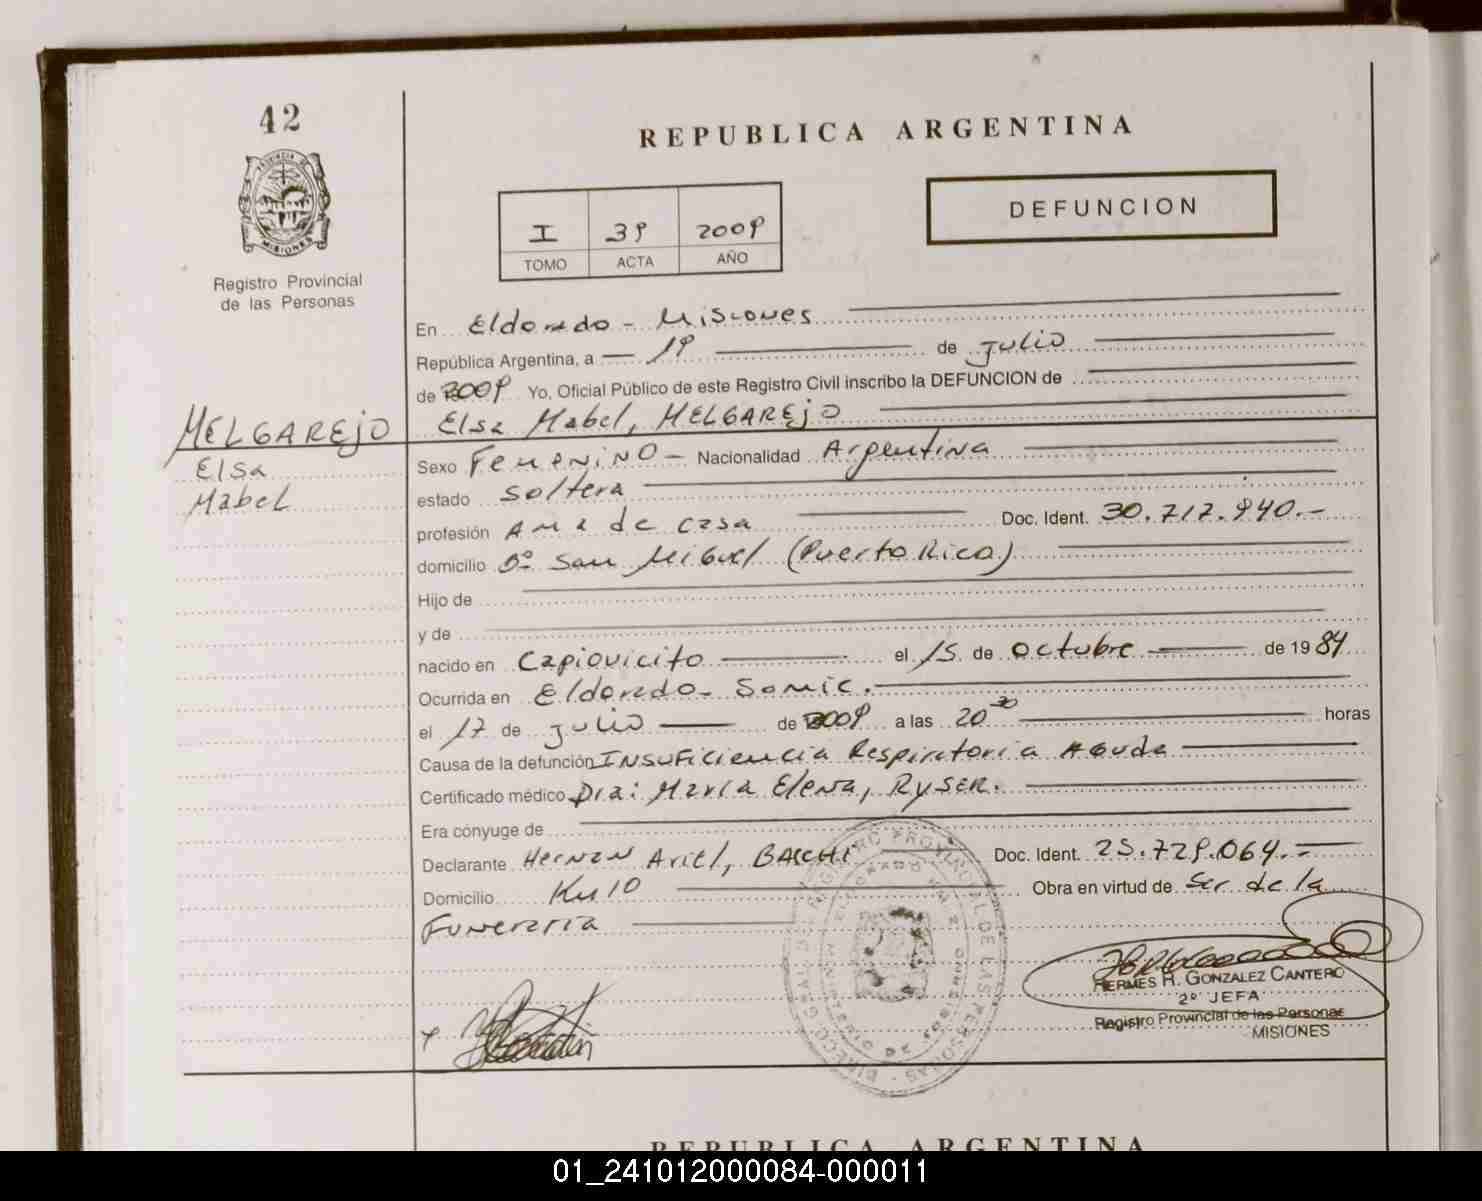 42
REPUBLICA ARGENTINA
DEFUNCION
I 39 2009
TOMO ACTA AÑO
PROVINCIA DE
MISIONES
Registro Provincial
de las Personas
En Eldorado - Misiones
República Argentina, a 19 de Julio
de 2009 Yo, Oficial Público de este Registro Civil inscribo la DEFUNCION de
Elsa Mabel, MELGAREJO
MELGAREJO
Elsa
Mabel
Sexo Femenino - Nacionalidad Argentina
estado soltera
profesión Ama de casa Doc. Ident. 30.717.940.-
domicilio Bº San Miguel (Puerto Rico)
Hijo de
y de
nacido en Capiovicito el 15 de octubre de 1984
Ocurrida en Eldorado - Samic.
el 17 de julio de 2009 a las 20 30 horas
Causa de la defunción Insuficiencia Respiratoria Aguda
Certificado médico Dra: María Elena, Ryser.
Era cónyuge de
Declarante Hernan Ariel, Doc. Ident. 25.729.064.-
Domicilio Km 10 Obra en virtud de Ser de la
Funeraria
HERMES R. GONZALEZ CANTERO
2º JEFA
Registro Provincial de las Personas
MISIONES
REPUBLICA ARGENTINA
01_241012000084-000011